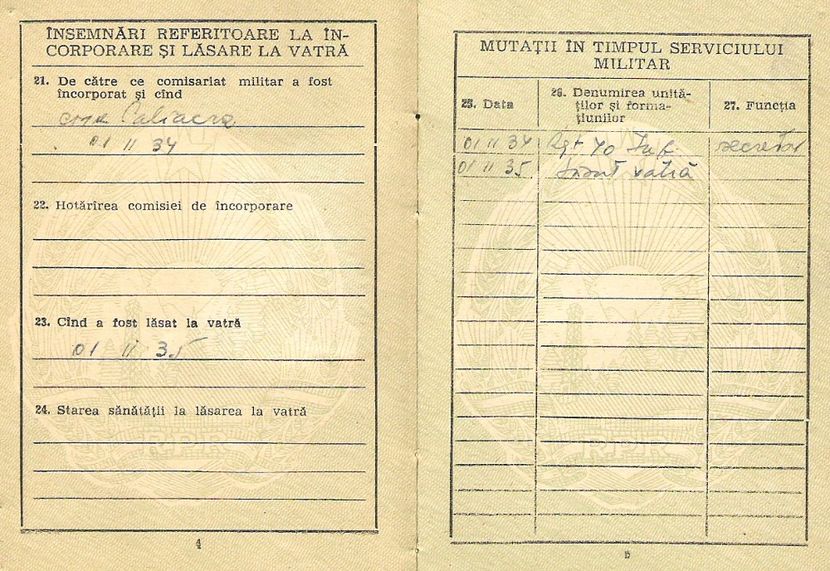 ÎNSEMNĂRI REFERITOARE LA ÎN-
CORPORARE ȘI LĂSARE LA VATRĂ
21. De către ce comisariat militar a fost
încorporat și cînd
Caliacra
01 11 34
22. Hotărîrea comisiei de încorporare
23. Cînd a fost lăsat la vatră
01 11 35
24. Starea sănătății la lăsarea la vatră
RPR
4
MUTAȚII ÎN TIMPUL SERVICIULUI
MILITAR
25. Data
26. Denumirea unită-
ților și forma-
țiunilor
27. Funcția
01 11 34 Rgt 40 Inf secretar
01 11 35 vatră
RPR
5